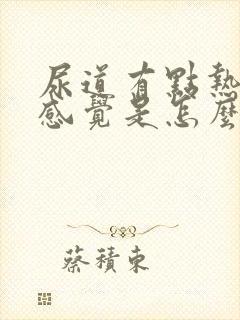 尿道有點熱
感覺是怎麼
蔡積東